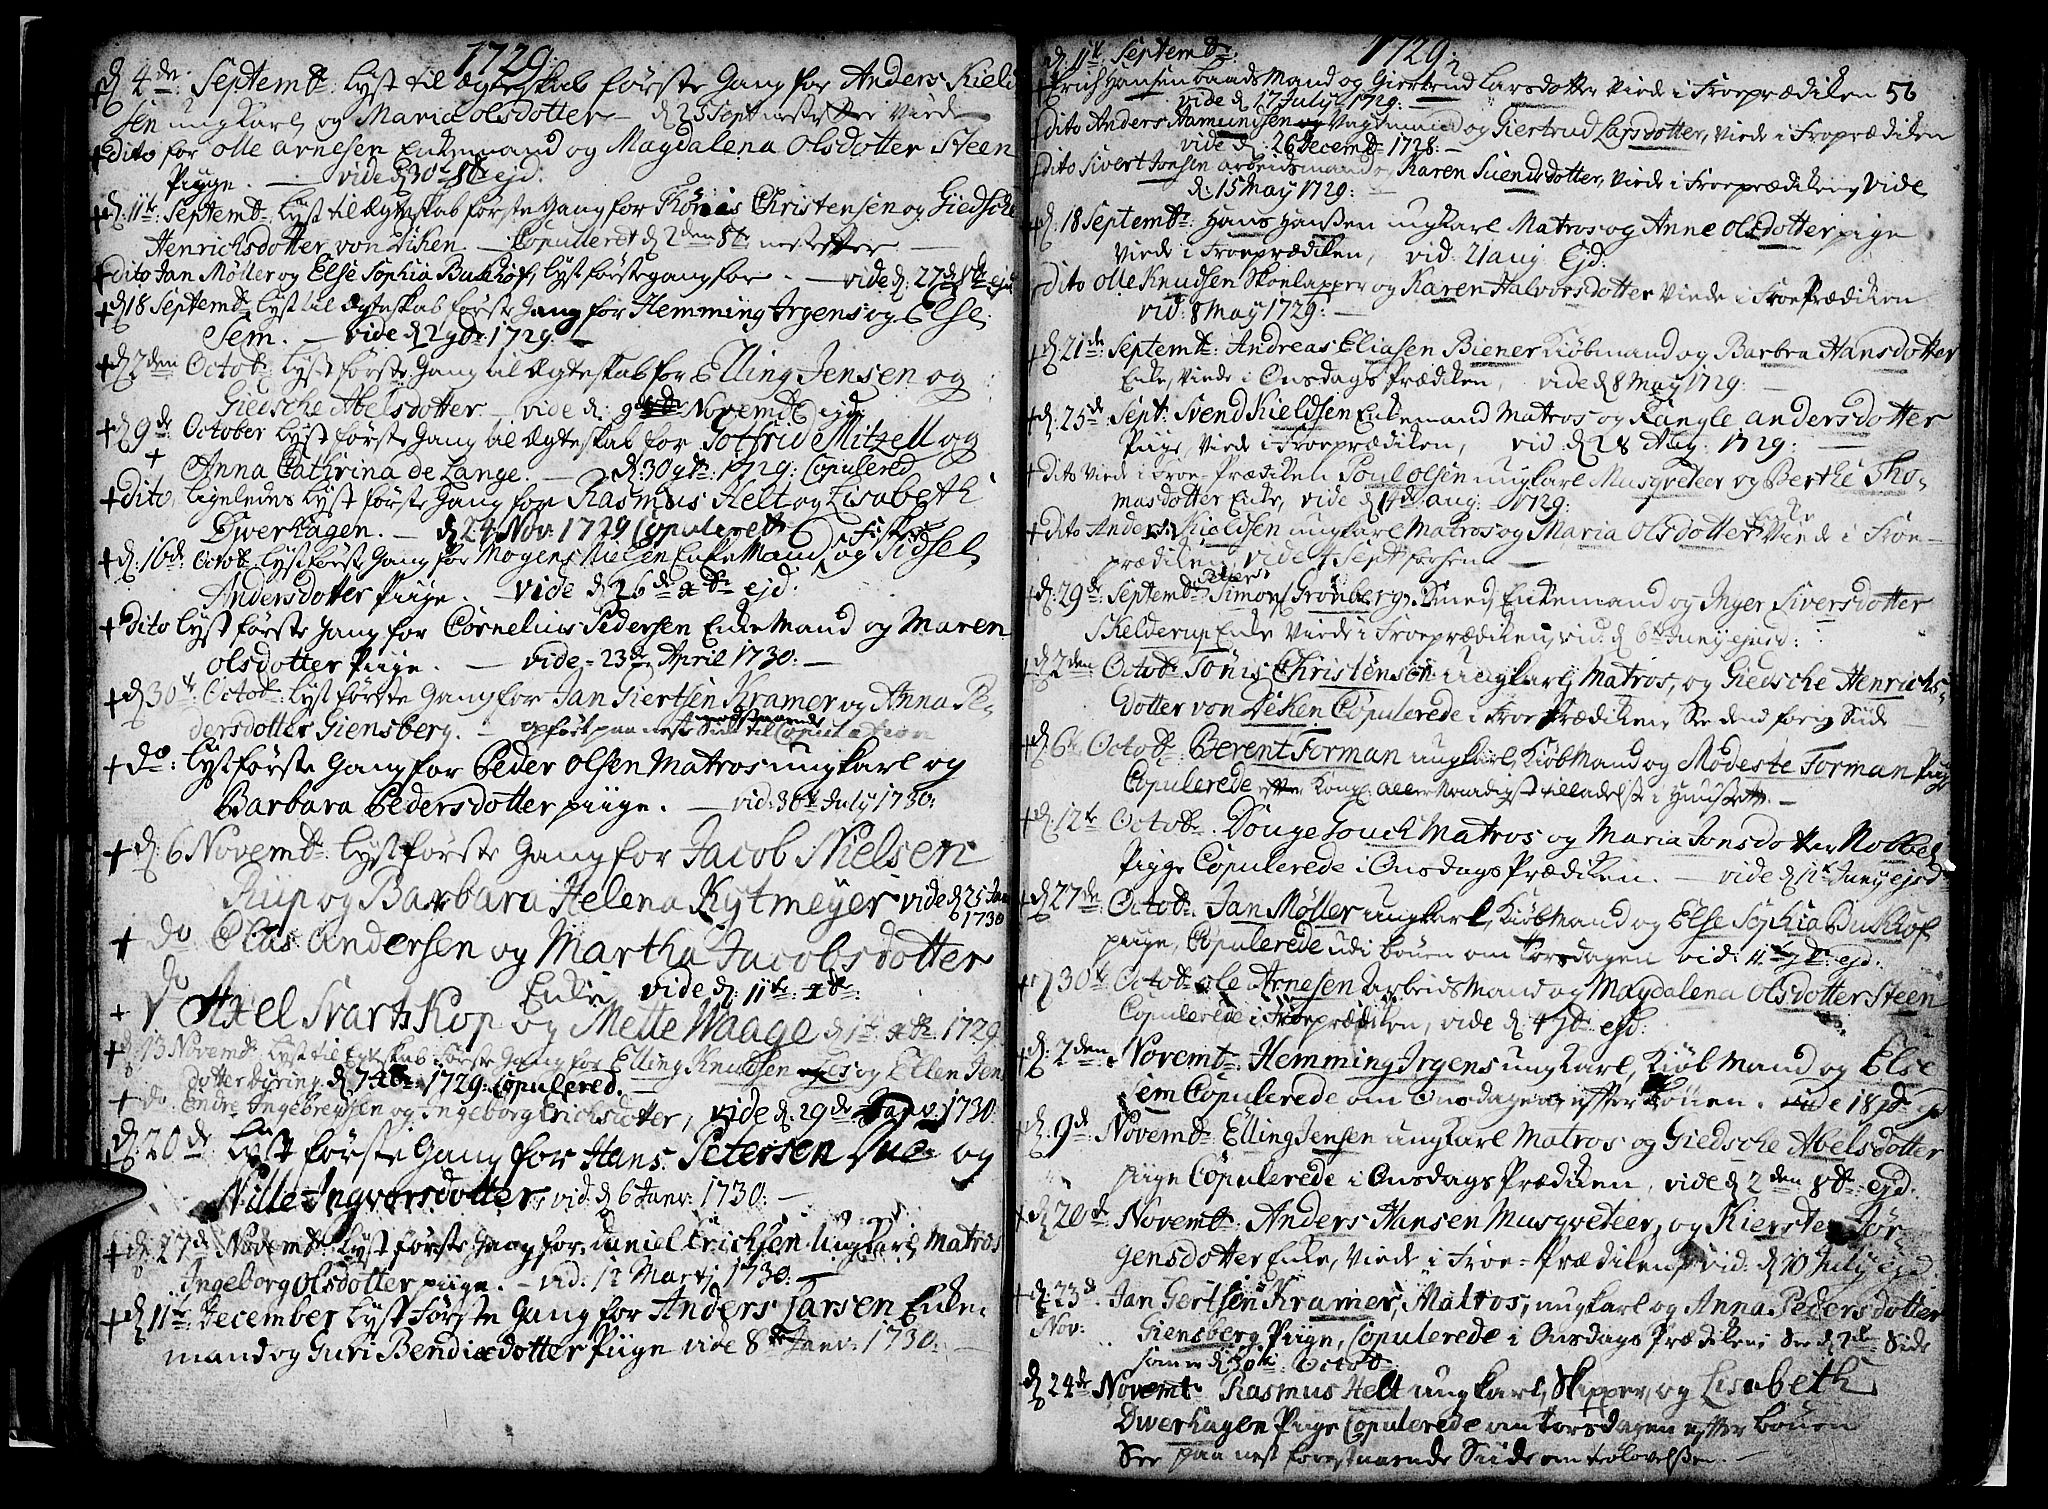 1729.
d 4de: Septembr: Lyst til Ægteskab første Gang for Anders Kield
sen ungkarl, og Maria Olsdotter — d 25 Sept nest Viede
+ dito for Olle Arnesen Enkemand og Magdalena Olsdotter Steen
Piige. — vide d 30te 8br ejd:
+ d. 11te Septembr: Lyst til Ægteskab første Gang for Christensen og Giedsche
Henrichsdotter von Diken. — Copuleret d 2den 8br nestefter
+ dito Jan Møller og Else Sophia Bukhof, Lyst første gang for. — vide d: 27de 8br ejd
+ d 18 Septembr Lyst til Ægteskab første Gang for Hemming Irgens og Else
Sem. — vide d 2 9br 1729. —
+ d 2den Octobr: Lyst første Gang til Ægteskab for Elling Jensen og
Giedsche Abelsdotter — vide d: 9de Novembr ejd
+ d 9de October Lyst første Gang til Ægteskab for Mitzell og
+ Anna Cathrina de Lange. — d: 30 9br: 1729: Copulered
+ dito, ligeledes Lyst første Gang for Rasmus Helt og Lisabeth
Dwerhagen. — d 24 Nov: 1729 Copulereth
+ d: 16de Octobr Lyst første Gang for Mogens Nielsen Enke Mand, Fisker og Sidsel
Andersdotter Piige. — vide d 26de xbr ejd:
+ dito Lyst første Gang for Cornelius Pedersen Enke Mand og Maren
Olsdotter Piige. — vide 23de April 1730: —
+ d 30te Octobr: Lyst første Gang for Jan Giertsen Kramer og Anna Pe-
dersdotter Giensberg. — opført paa nest modstaaende Side til Copulation
+ do: Lyst første Gang for Peder Olsen Matros ungkarl og
Barbara Pedersdotter piige. — vid: 30te July 1730:
+ d: 6 Novembr: Lyst første Gang for Jacob Nielsen
Riip og Barbara Helena Kytmeyer vide d 25 Jan
1730
+ do Claus Andersen og Martha Jacobsdotter
Enke, vide d: 11te: xbr:
+ do Axel Svartskop og Mette Waage d 1te xbr 1729
+ d: 13 Novembr: Lyst til Egteskab første Gang for Elling Knudsen og Ellen Jens
dotter Døring. d 7 xbr: 1729: Copulered. —
+ do Endre Ingebregtsen og Ingeborg Erichsdotter, vide d: 29de Janv: 1730
d: 20de Lyst første Gang for Hans Petersen Due og
Nille Ingvorsdotter, vid: d 6 Janv: 1730: —
+ d: 27de Novembr: Lyst første Gang for: Daniel Erichsen ungkarl, Matros
Ingeborg Olsdotter piige. — vid: 12 Martj 1730: —
+ d 11te December Lyst Første Gang for Anders Larsen Enke-
mand og Guri Bendixdotter Piige vide 8de Janv: 1730: —
1729.
56
d: 11te Septembr:
+ Erich Hansen Baads Mand og Giertrud Larsdotter Viede i Froeprædiken
vide d 17 July 1729: —
+ dito Anders Aamundsen Vægtmand og Giertrud Larsdotter, Viede i Froprædiken
vide d: 26 Decembr 1728: —
dito Sivert Jonsen arbeidsmand og Karen Suendsdotter, Viede i Froeprædiken, vide
d: 15 May 1729: —
+ d: 18 Septembr: Hans Hanssen ungkarl Matros og Anne Olsdotter pige
Viede i Froeprædiken, vid: 21 aug: Ejd:
dito Olle Knudsen Skoelapper og Karen Halvorsdotter Viede i Froeprædiken
vid: 8 May 1729: —
+ d: 21de Septembr: Andreas Eliasen Biener Kiøbmand og Barbra Hansdotter
Enke, Viede i Onsdags Prædiken, vide d 8 May 1729: —
+ d: 25de Sept: Svend Kieldsen Enkemand Matros og Rangle Andersdotter
Piige, Viede i Froeprædiken, vid d 28 Aug: 1729: —
+ dito Viede i Froe-Prædiken Poul Olsen ungkarl Musqveteer og Berthe Tho-
masdotter Enke, vide d 14de aug: 1729:
+ dito Anders Kieldsen ungkarl Matros og Maria Olsdotter Enke Viede i Froe-
prædiken, vide 4 Sept: —
+ d: 29de Septembr: Simon Peters: Grønberg, Smed, Enkemand og Inger Siversdotter
Skelderup Enke Viede i Froeprædiken, vid: d 6te Juny ejusd:
+ d: 2den Octobr Tønis Christensen ungkarl, Matros, og Giedsche Henrichs-
dotter von Diken Copulerede i Froe Prædiken, See dend forig Side —
+ d: 6te Octobr: Berent Forman ungkarl, Kiøbmand og Modeste Forman Piige
Copulerede efter Kongl: allernaadigst tilladelse i Huuset. —
+ d: 12te Octobr. Douge Gouch Matros og Maria Jonsdotter Nobbel
Piige Copulerede i Onsdags Prædiken. — vide d 12te Juny ejsd
+ d: 27de Octobr. Jan Møller ungkarl, Kiøbmand og Else Sophia Bukhof
piige, Copulerede udi bønen om Torsdagen vid: 11te 7br: ejd:
+ d 30te Octobr Ole Arnesen Arbeids Mand og Magdalena Olsdotter Steen
Copulerede i Froeprædiken, vide d 4 7br ejd.
+ d: 2den Novembr: Hemming Irgens ungkarl, Kiøbmand og Else
Sem Copulerede om Onsdagen efter Bønen. vide 18 7br
+ d: 9de Novembr: Elling Jensen ungkarl Matros og Giedsche Abelsdotter
piige Copulerede i Onsdags Prædiken, vide d 2den 8br: ejd:
+ d 20de Novembr: Anders Hansen Musqveteer, og Kiersten Jør-
gensdotter Enke, Viede i Froe-Prædiken, vid: d 10 July ejd:
+ d 23de Nov: Jan Gertsen Kramer, Matros, ungkarl og Anna Pedersdotter
Giensberg Piige, Copulerede i Onsdags Prædiken See d 1te Side
som er d 30te: Octobr
d 24de Novembr Rasmus Helt ungkarl, Skipper, og Lisabeth
Dwerhagen Piige Copulerede om torsdagen efter bønen
See paa nest forestaaende Siide om trolovelssen. —